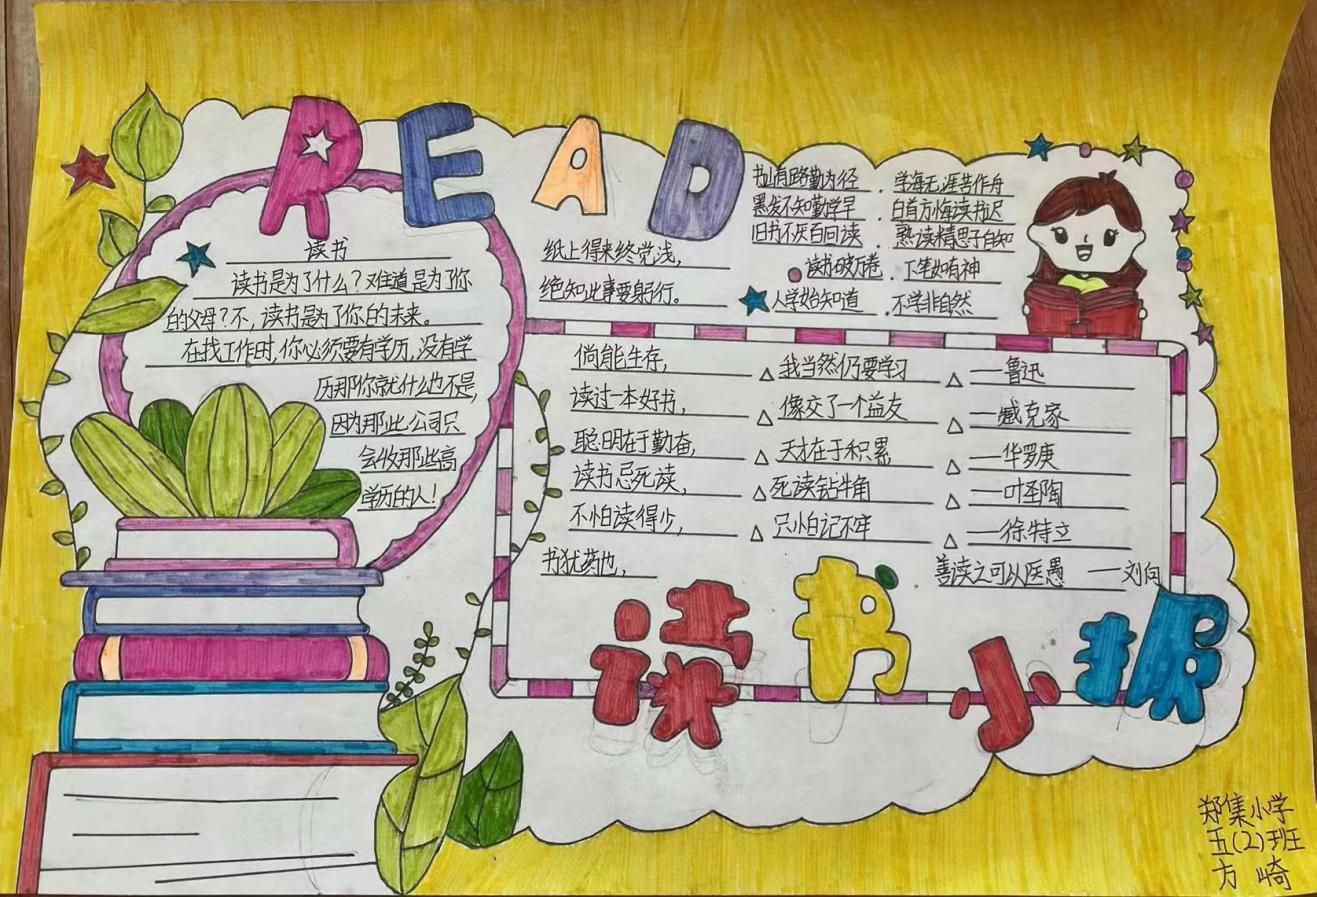 READ
读书
读书是为了什么？难道是为了你
的父母？不，读书是为了你的未来。
在找工作时，你必须要有学历，没有学
历那你就什么也不是，
因为那些公司只
会收那些高
学历的人！
纸上得来终觉浅，
绝知此事要躬行。
书山有路勤为径．学海无涯苦作舟
黑发不知勤学早．白首方悔读书迟
旧书不厌百回读．熟读精思子自知
读书破万卷．下笔如有神
人学始知道．不学非自然
倘能生存，△我当然仍要学习△——鲁迅
读过一本好书，△像交了一个益友△——臧克家
聪明在于勤奋，△天才在于积累△——华罗庚
读书忌死读，△死读钻牛角△——叶圣陶
不怕读得少，△只怕记不牢△——徐特立
书犹药也，．善读之可以医愚——刘向
读书小报
郑集小学
五(2)班
方崎